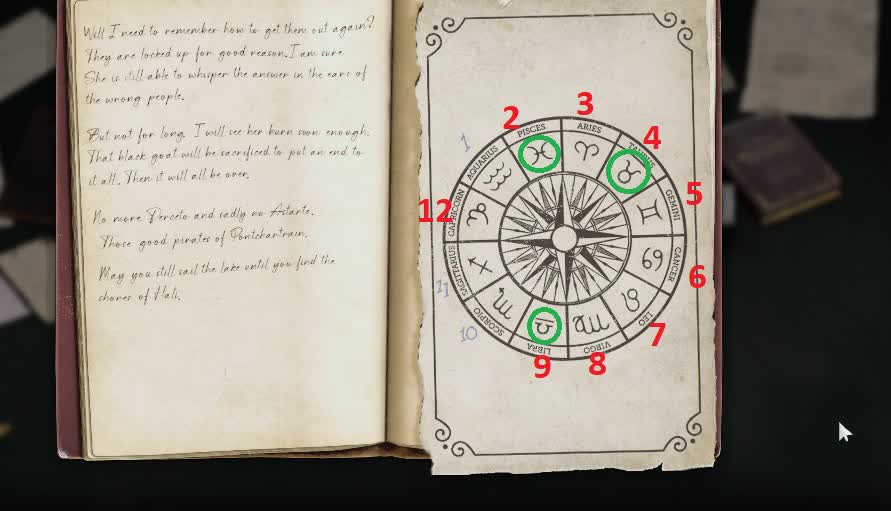 Will I need to remember how to get them out again?
They are locked up for good reason. I am sure
She is still able to whisper the answer in the ears of
the wrong people.
But not for long. I will see her burn soon enough.
That black goat will be sacrificed to put an end to
it all. Then it will all be over.
No more Perceto and sadly no Astarte.
Those good pirates of Pontchartrain.
May you still sail the lake until you find the
shores of Hali.
1
2
3
4
5
6
7
8
9
10
11
12
PISCES
ARIES
TAURUS
GEMINI
CANCER
LEO
VIRGO
LIBRA
SCORPIO
SAGITTARIUS
CAPRICORN
AQUARIUS